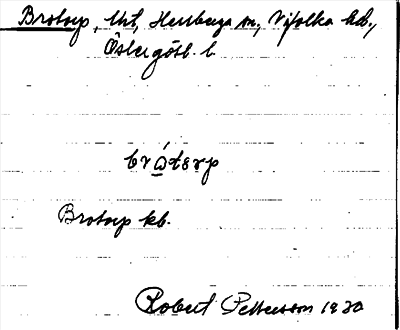 Brotorp, Utj, Herrberga sn, Vifolka hd.,
Östergötl. l.
bròtɛrp
Brotorp kb.
Robert Pettersson 1930